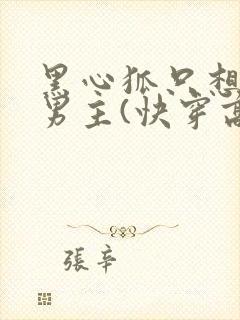 黑心狐只想
男主(快穿高
張辛